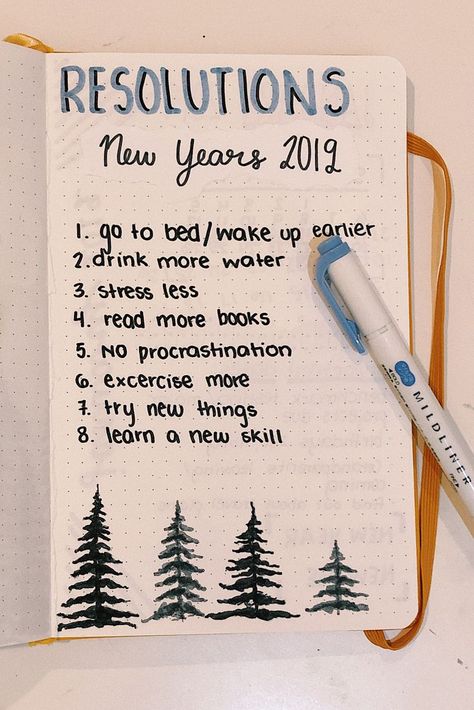 RESOLUTIONS
New Years 2019
1. go to bed/wake up earlier
2. drink more water
3. stress less
4. read more books
5. NO procrastination
6. excercise more
7. try new things
8. learn a new skill
MILDLINER